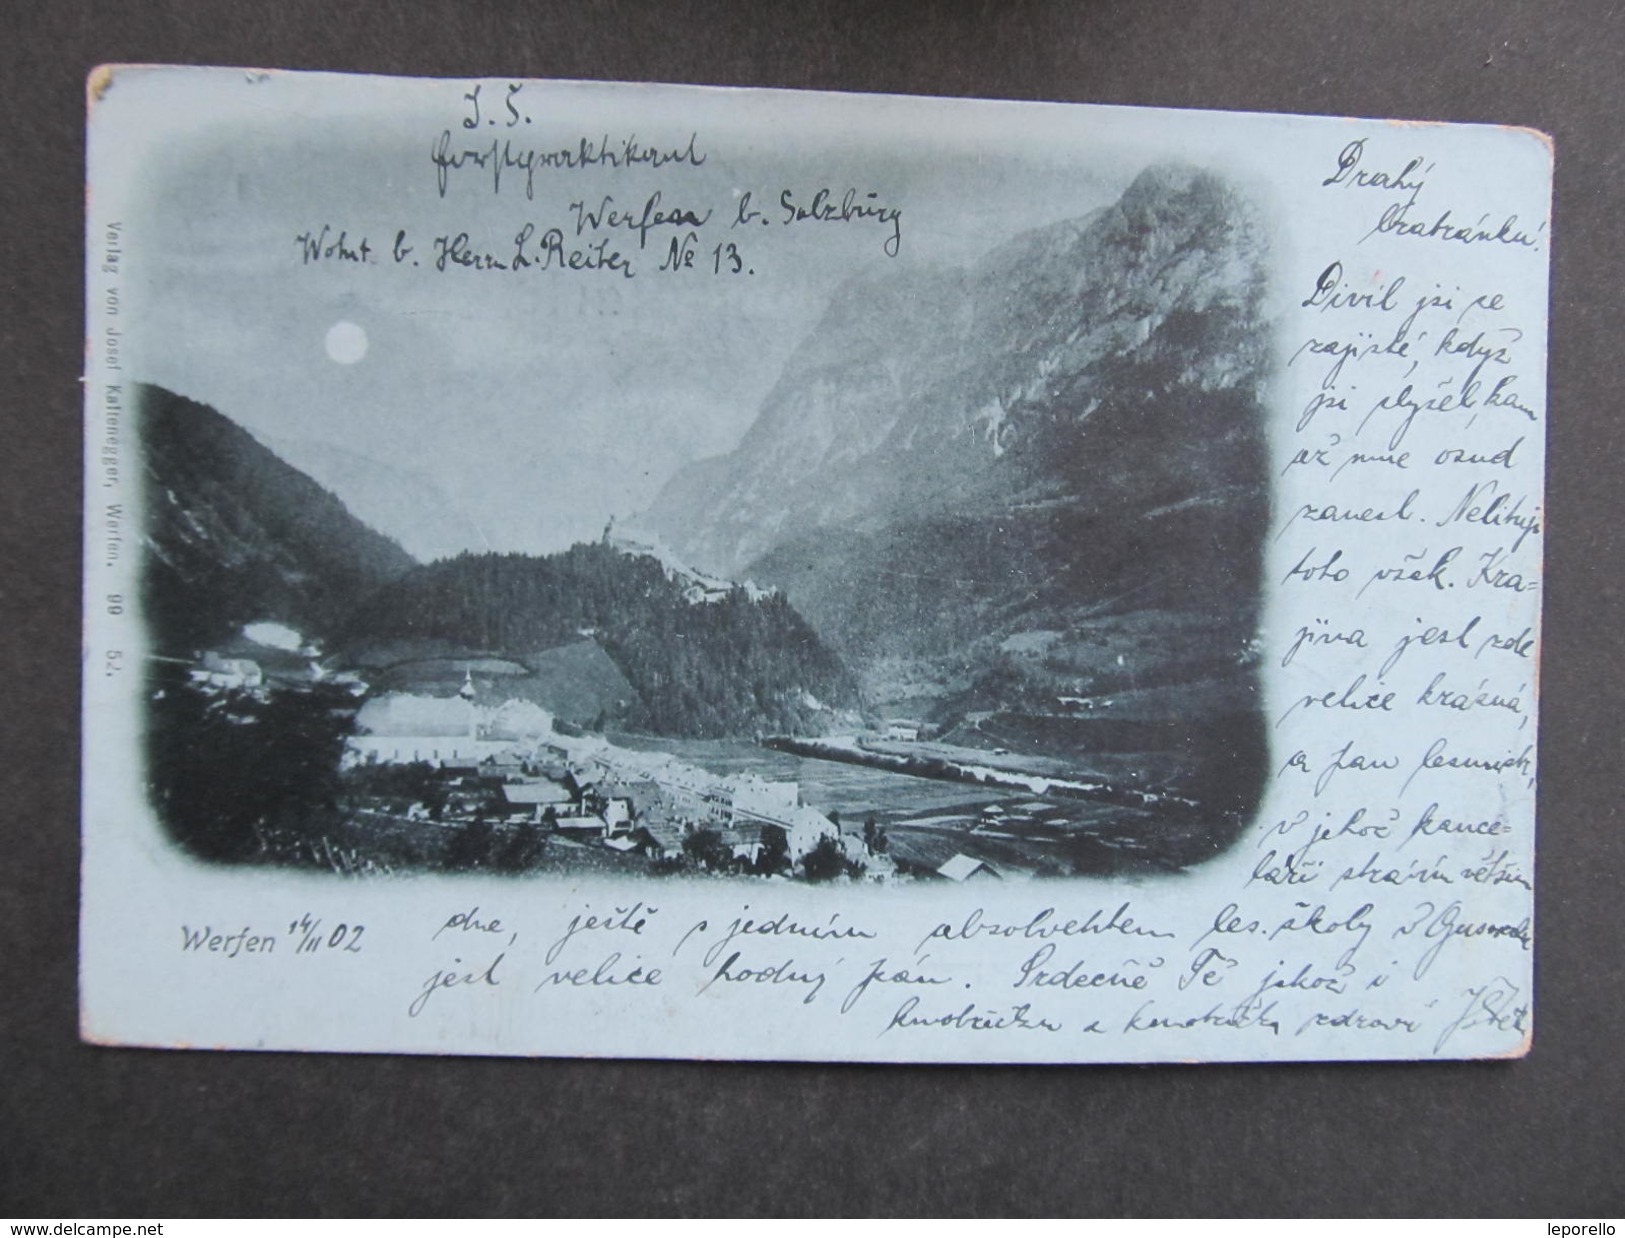 J. Š.
Forstpraktikant
Werfen b. Salzburg
Wohnt b. Herrn L. Reiter № 13.
Verlag von Josef Kaltenegger, Werfen. 99 52.
Drahý
bratránku!
Divil jsi se
zajisté, když
jsi slyšel, kam
až mne osud
zanesl. Nelituji
toho však. Kra=
jina jest zde
velice krásná,
a pan lesmistr,
v jehož kance=
láři strávím většinu
Werfen 14/11 02
dne, ještě s jedním absolventem les. školy v
jest velice hodný pán. Srdečně Tě jakož i
a zdraví
delcampe.net
leporello